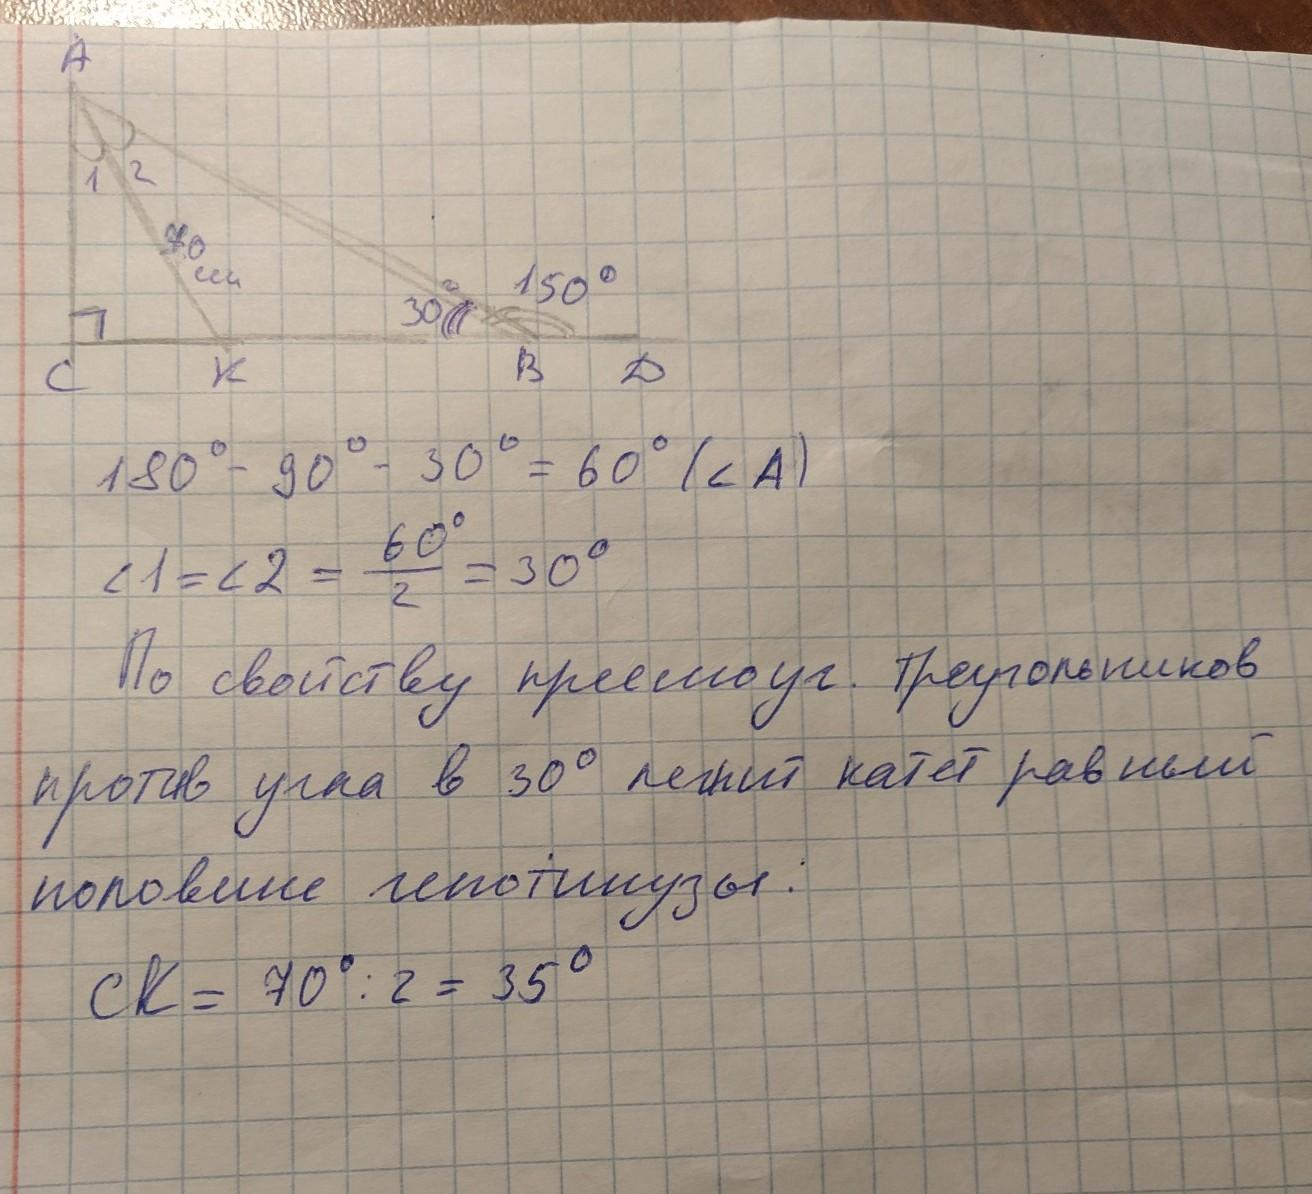 A
1 2
70
см
30° 150°
C K B D
180° - 90° - 30° = 60° (∠A)
∠1 = ∠2 = 60°/2 = 30°
По свойству преемоуг. треугольников
против угла в 30° лежит катет равный
половине гепотинузы:
CK = 70° : 2 = 35°